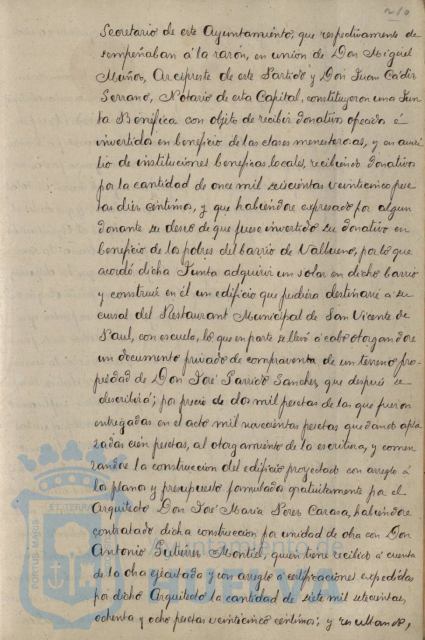 210
Secretario de este Ayuntamiento, que respectivamente de
sempeñaban á la razón, en union de Don Miguel
Muños, Arcipreste de este Partido y Don Juan
Serrano, Notario de esta Capital, constituyeron una Jun
ta Benéfica con objeto de recibir donativos é
invertirlos en beneficio de las clases menesterosas, y en auxi
lio de instituciones beneficas locales, recibiendo donativos
por la cantidad de once mil seiscientas veinticinco pese
tas diez centimos, y que habiendose expresado por algun
donante su deseo de que fuese invertido su donativo en
beneficio de los pobres del barrio de por lo que
acordó dicha Junta adquirir un solar en dicho barrio
y construir en él un edificio que pudiera destinarse a su
cursal del Restaurant Municipal de San Vicente de
Paul, con escuela, lo que en parte se llevó á cabo otorgandose
un documento privado de compraventa de un terreno pro
piedad de Don José Garrido Sanchez, que después se
describirá; por precio de dos mil pesetas de las que fueron
entregadas en el acto mil novecientas pesetas quedando apla
zadas cien pesetas, al otorgamiento de la escritura, y comen
zandose la construccion del edificio proyectado con arreglo á
los planos y presupuesto formulados gratuitamente por el
Arquitecto Don José Maria habiendose
contratado dicha construccion por unidad de obra con Don
Antonio Gutierrez Montiel, quien tiene recibido á cuenta
de la obra ejecutada y con arreglo á certificaciones expedidas
por dicho Arquitecto la cantidad de siete mil setecientas,
ochenta y ocho pesetas veinticinco centimos; y resultando,